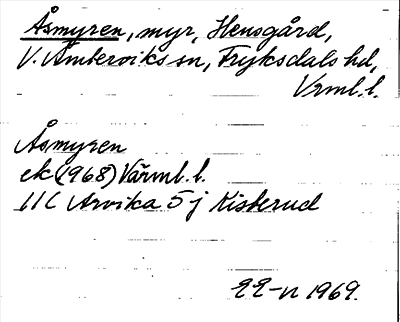 Åsmyren, myr, Hensgård,
V. Ämterviks sn, Fryksdals hd,
Vrml.l.
Åsmyren
ek (1968) Värml. l.
11C Arvika 5j Kisterud
1969.